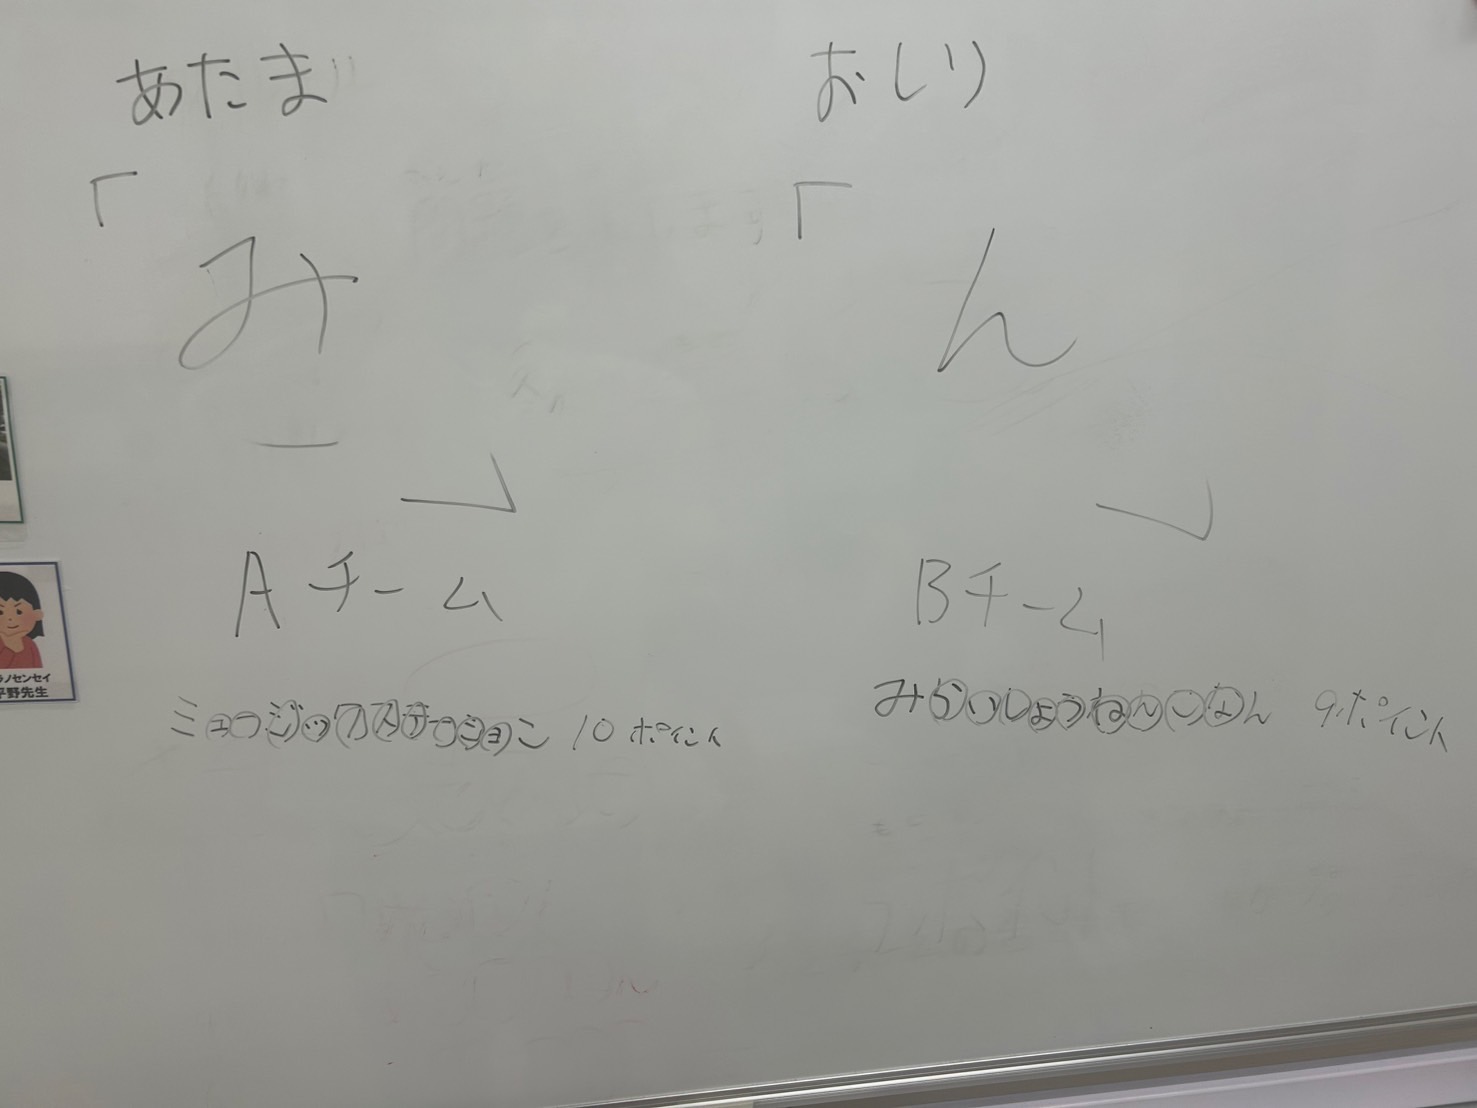 あたま
おしり
「み」
「ん」
Aチーム
Bチーム
ミュージックステーション 10ポイント
みらいしょうねんこなん 9ポイント
ノセンセイ
平野先生